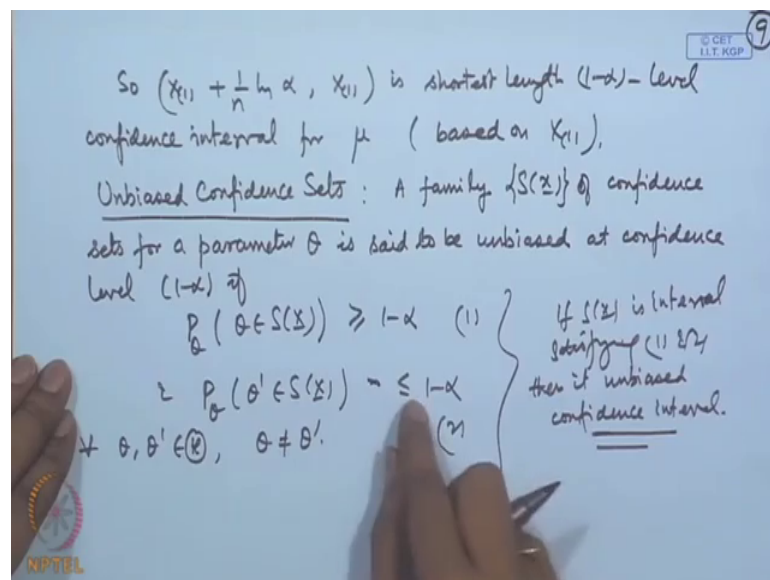 9
© CET
I.I.T. KGP
So (X₍₁₎ + 1/n ln α, X₍₁₎) is shortest length (1-α)-level
confidence interval for μ (based on X₍₁₎).
Unbiased Confidence Sets : A family {S(x)} of confidence
sets for a parameter θ is said to be unbiased at confidence
level (1-α) if
P_θ (θ ∈ S(X)) ≥ 1-α (1)
& P_θ (θ' ∈ S(X)) ≤ 1-α
(2)
∀ θ, θ' ∈ Ⓗ, θ ≠ θ'.
If S(x) is interval
satisfying (1) & (2)
then it unbiased
confidence interval.
NPTEL